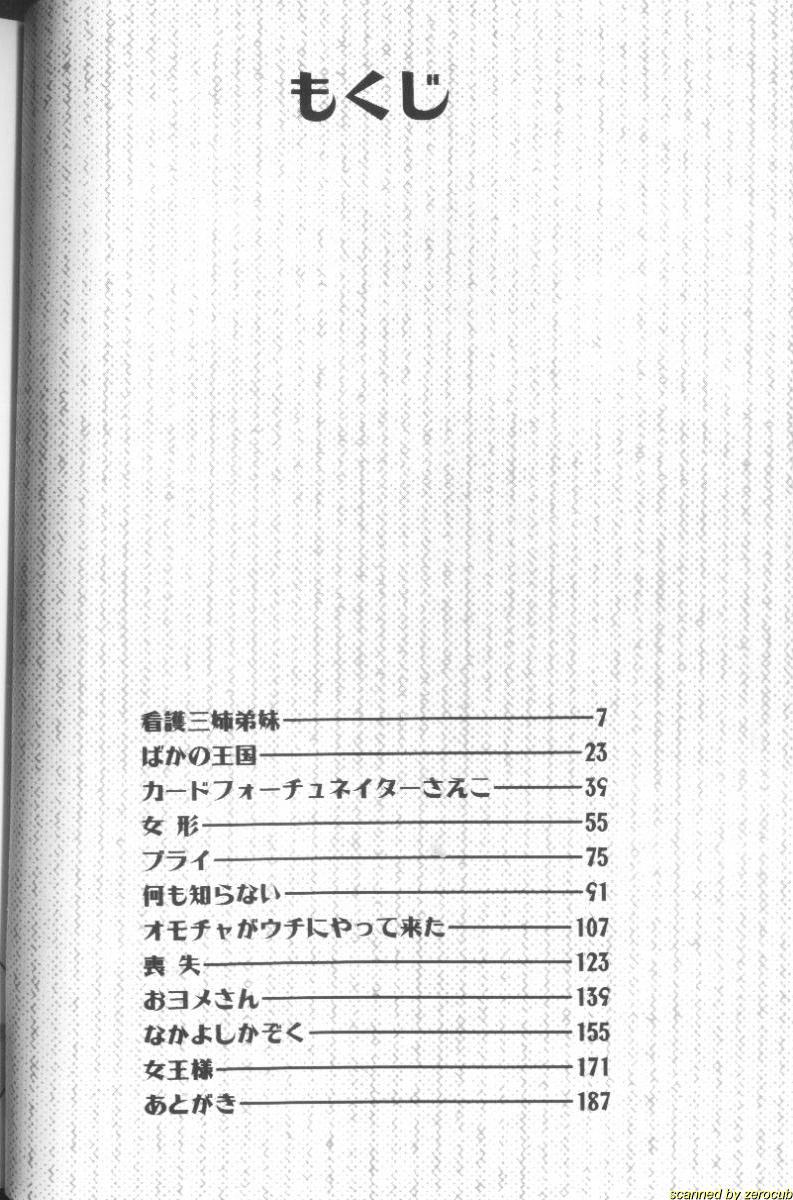 もくじ
看護三姉弟妹 7
ばかの王国 23
カードフォーチュネイターさえこ 39
女 形 55
プライ 75
何も知らない 91
オモチャがウチにやって来た 107
喪 失 123
おヨメさん 139
なかよしかぞく 155
女王様 171
あとがき 187
scanned by zerocub